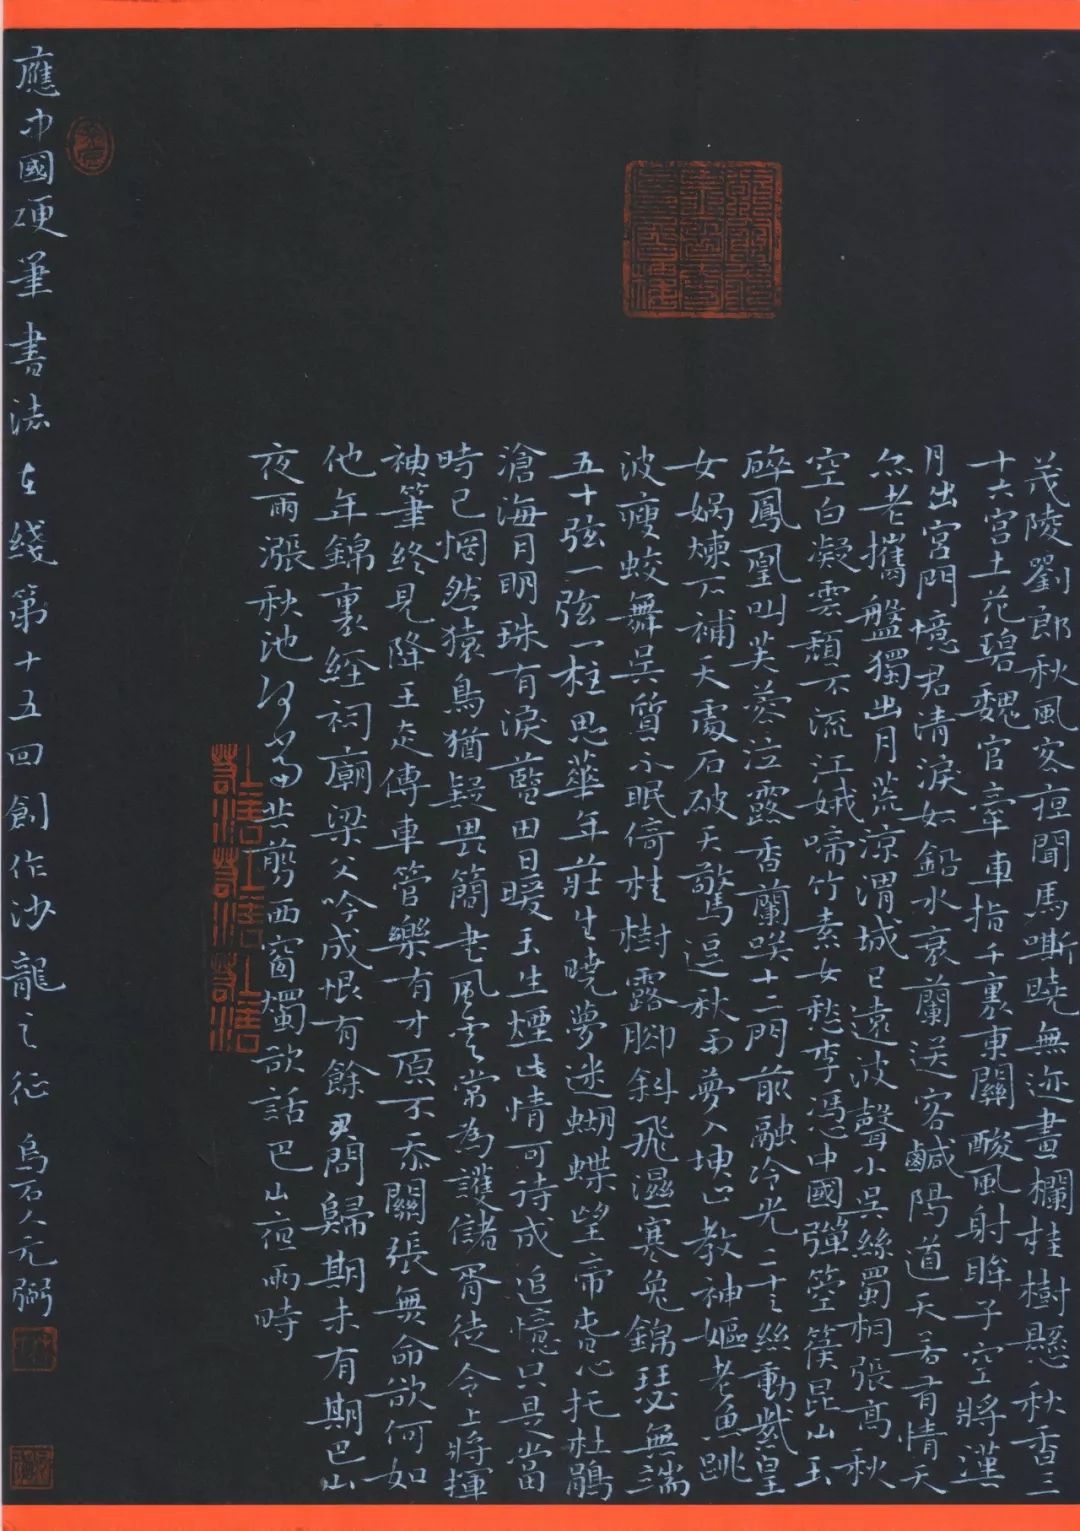 茂陵劉郎秋風客夜聞馬嘶曉無迹畫欄桂樹懸秋香三
十六宮土花碧魏官牽車指千裏東關酸風射眸子空將漢
月出宮門憶君清淚如鉛水衰蘭送客鹹陽道天若有情天
亦老攜盤獨出月荒涼渭城已遠波聲小吳絲蜀桐張高秋
空白凝雲頹不流江娥啼竹素女愁李憑中國彈箜篌昆山玉
碎鳳凰叫芙蓉泣露香蘭咲十二門前融冷光二十三絲動紫皇
女媧煉石補天處石破天驚逗秋雨夢入坤山教神嫗老魚跳
波瘦蛟舞吳質不眠倚桂樹露腳斜飛濕寒兔錦瑟無端
五十弦一弦一柱思華年莊生曉夢迷蝴蝶望帝春心托杜鵑
滄海月明珠有淚藍田日暖玉生煙此情可待成追憶只是當
時已惘然猿鳥猶疑畏簡書風雲常為護儲胥徒令上將揮
神筆終見降王走傳車管樂有才原不忝關張無命欲何如
他年錦裏經祠廟梁父吟成恨有餘君問歸期未有期巴山
夜雨漲秋池何當共剪西窗燭欲話巴山夜雨時
應中國硬筆書法在綫第十五回創作沙龍之征 烏石人元弼